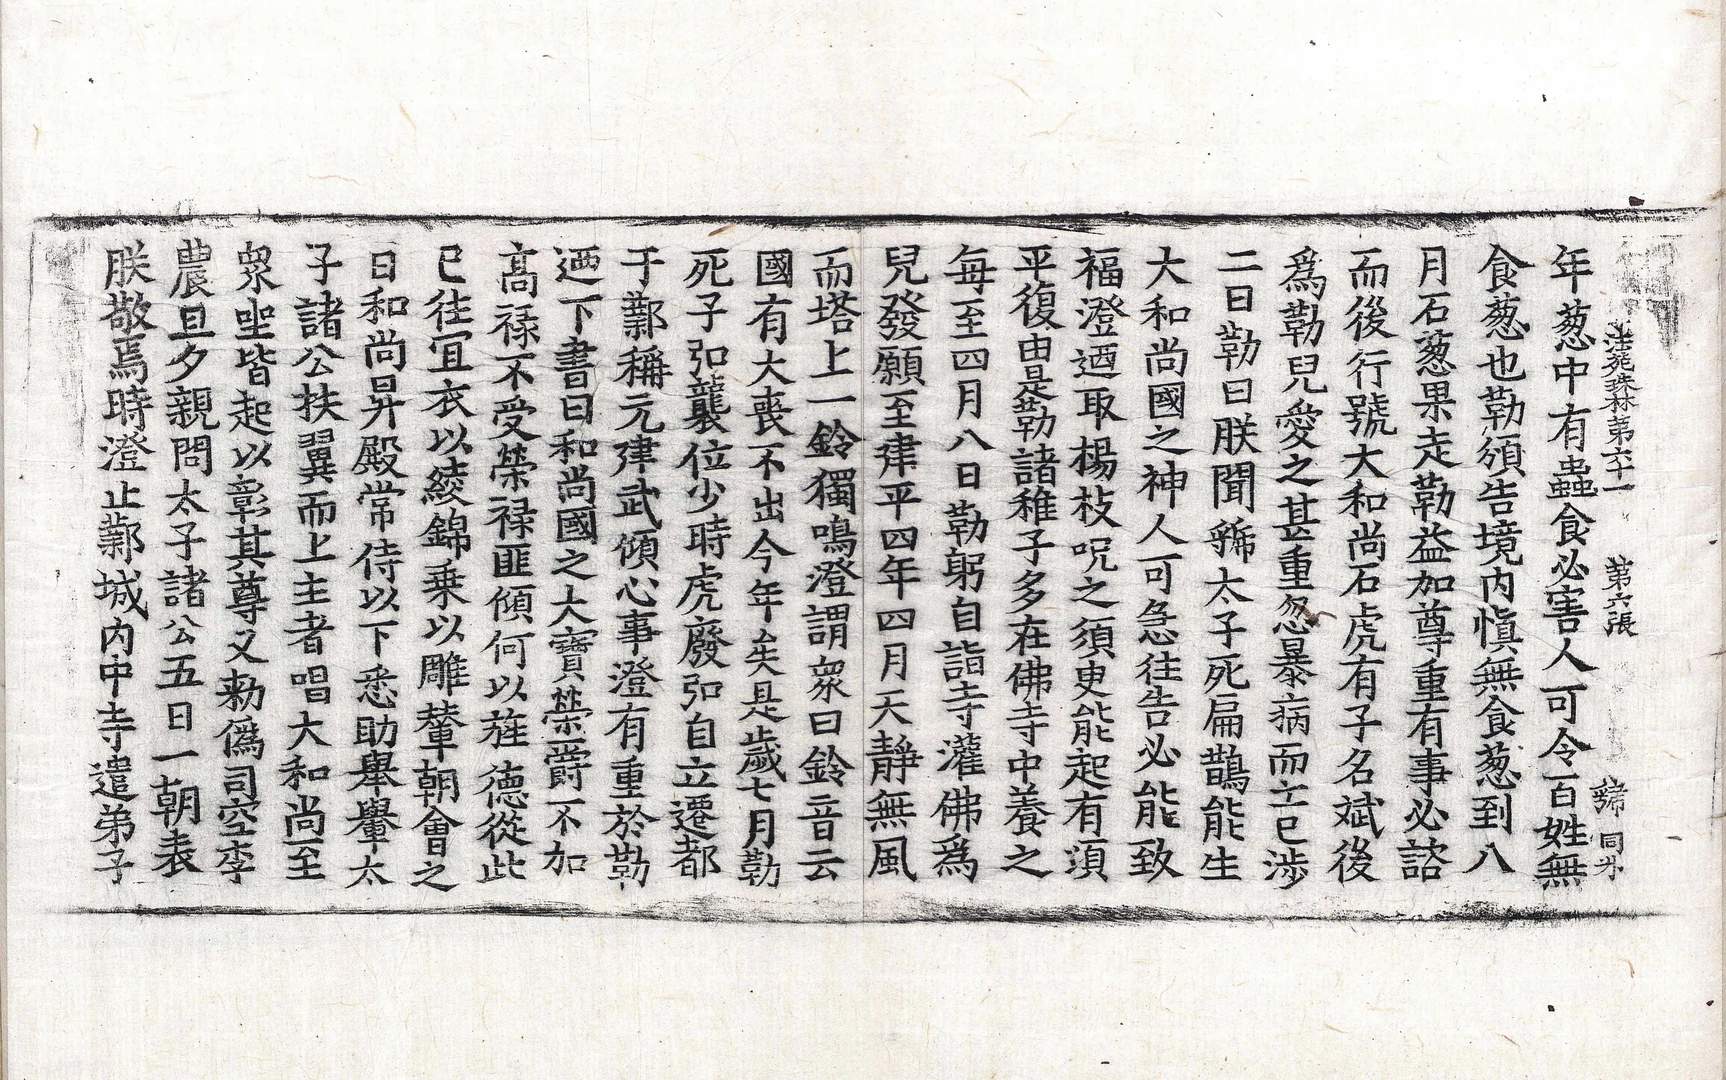 法苑珠林第六十一 第六張
年葱中有蟲食必害人可令百姓無
食葱也勒頒告境内慎無食葱到八
月石葱果走勒益加尊重有事必諮
而後行號大和尚石虎有子名斌後
爲勒兒愛之甚重忽暴病而亡已涉
二日勒曰朕聞虢太子死扁鵲能生
大和尚國之神人可急往告必能致
福澄迺取楊枝呪之須臾能起有湏
平復由是勒諸稚子多在佛寺中養之
每至四月八日勒躬自詣寺灌佛爲
兒發願至建平四年四月天靜無風
而塔上一鈴獨鳴澄謂衆曰鈴音云
國有大喪不出今年矣是歲七月勒
死子弘襲位少時虎廢弘自立遷都
于鄴稱元建武傾心事澄有重於勒
迺下書曰和尚國之大寶榮爵不加
高禄不受榮禄匪傾何以旌德從此
已往宜衣以綾錦乗以雕輦朝會之
日和尚昇殿常侍以下悉助舉轝太
子諸公扶翼而上主者唱大和尚至
衆坐皆起以彰其尊又勑僞司空李
農旦夕親問太子諸公五日一朝表
朕敬焉時澄止鄴城内中寺遣弟子